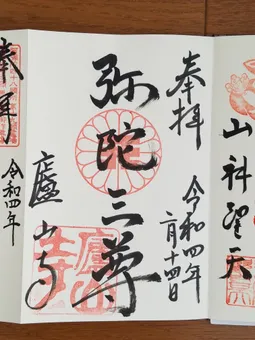 山科聖天
奉拝
令和四年
二月十四日
弥陀三尊
廬山寺
奉拝
令和四年